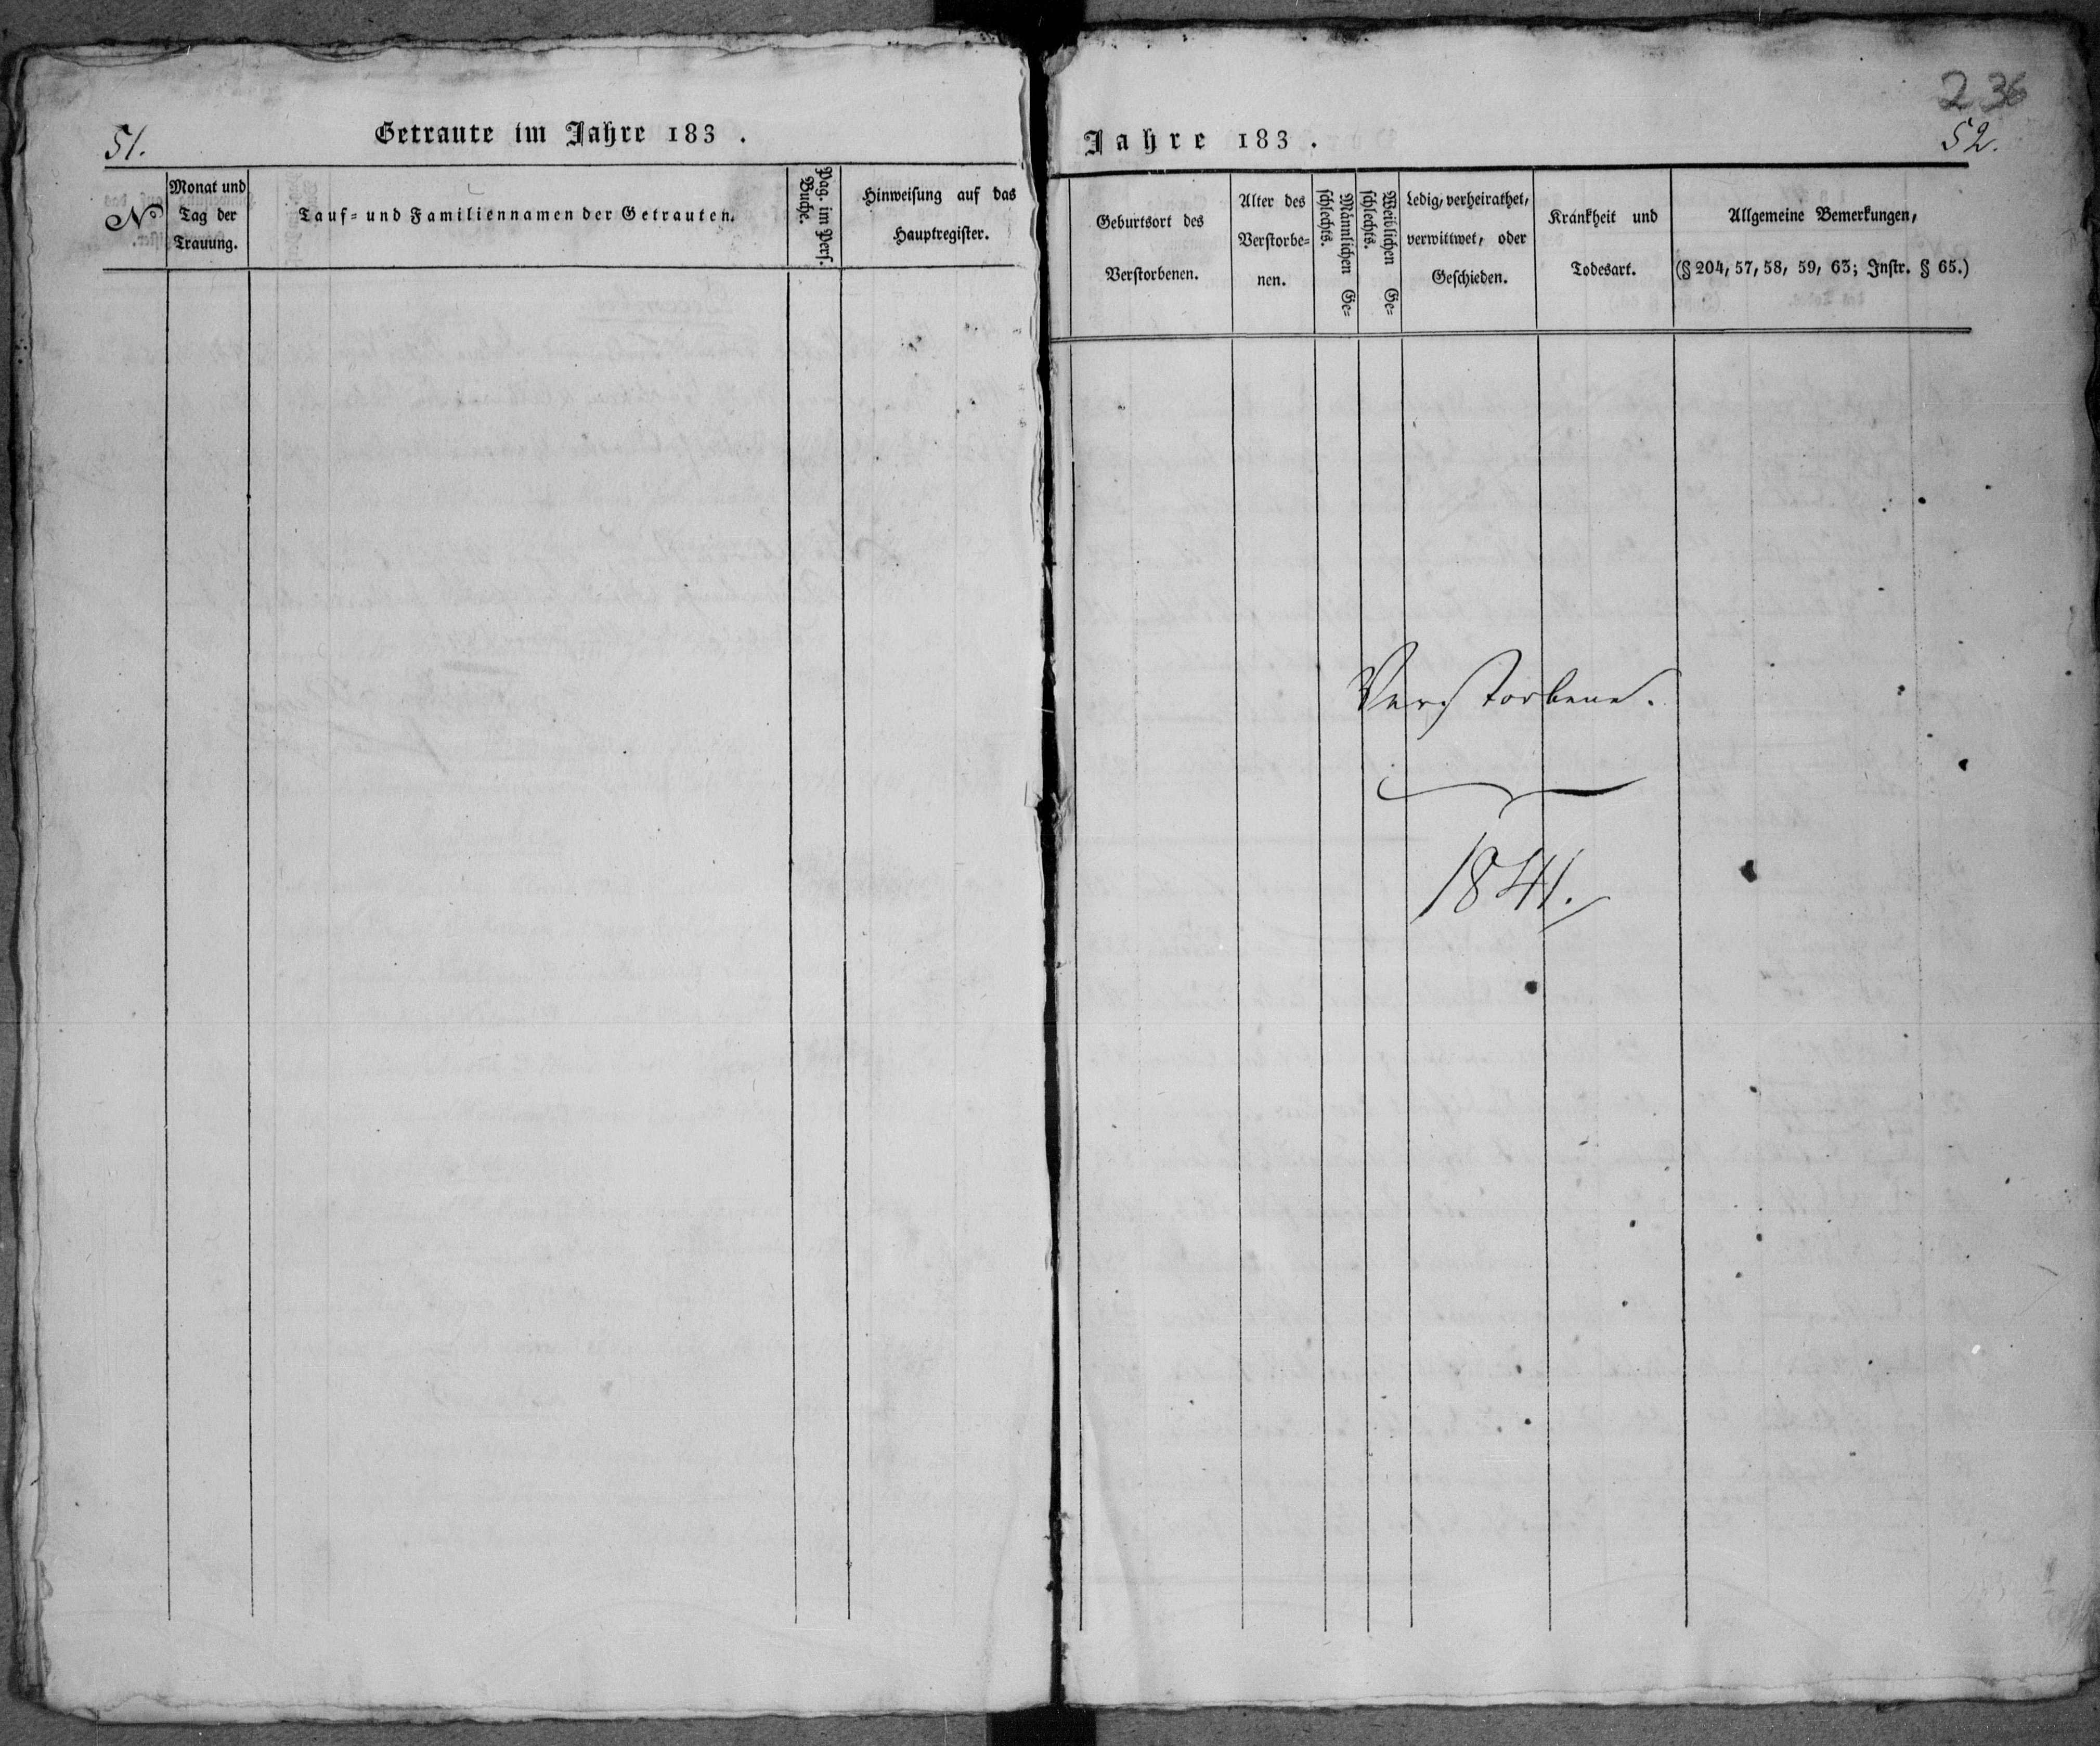 51.
Getraute im Jahre 183 .
No
Monat und
Tag der
Trauung.
Tauf- und Familiennamen der Getrauten.
Pag. im Pers.
Buche.
Hinweisung auf das
Hauptregister.
236
52.
Jahre 183 .
Geburtsort des
Verstorbenen.
Alter des
Verstorbe-
nen.
Männlichen Ge-
schlechts.
Weiblichen Ge-
schlechts.
Ledig, verheirathet,
verwittwet, oder
Geschieden.
Krankheit und
Todesart.
Allgemeine Bemerkungen,
(§ 204, 57, 58, 59, 63; Instr. § 65.)
Verstorbene.
1841.